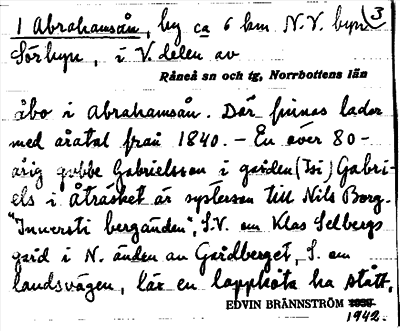 1 Abrahamsån, by ca 6 km N.V. byn 3
Sörbyn, i V. delen av
Råneå sn och tg, Norrbottens län
åbo i Abrahamsån. Där finnas lador
med åratal från 1840. – En över 80-
årig gubbe Gabrielsson i gården (Isi) Gabri-
els i åträsket är systerson till Nils Borg.
"Innersti bergänden", S.V. om Klas Selbergs
gård i N. änden av Gårdberget, S. om
landsvägen, lär en lappkåta ha stått,
EDVIN BRÄNNSTRÖM
1942.